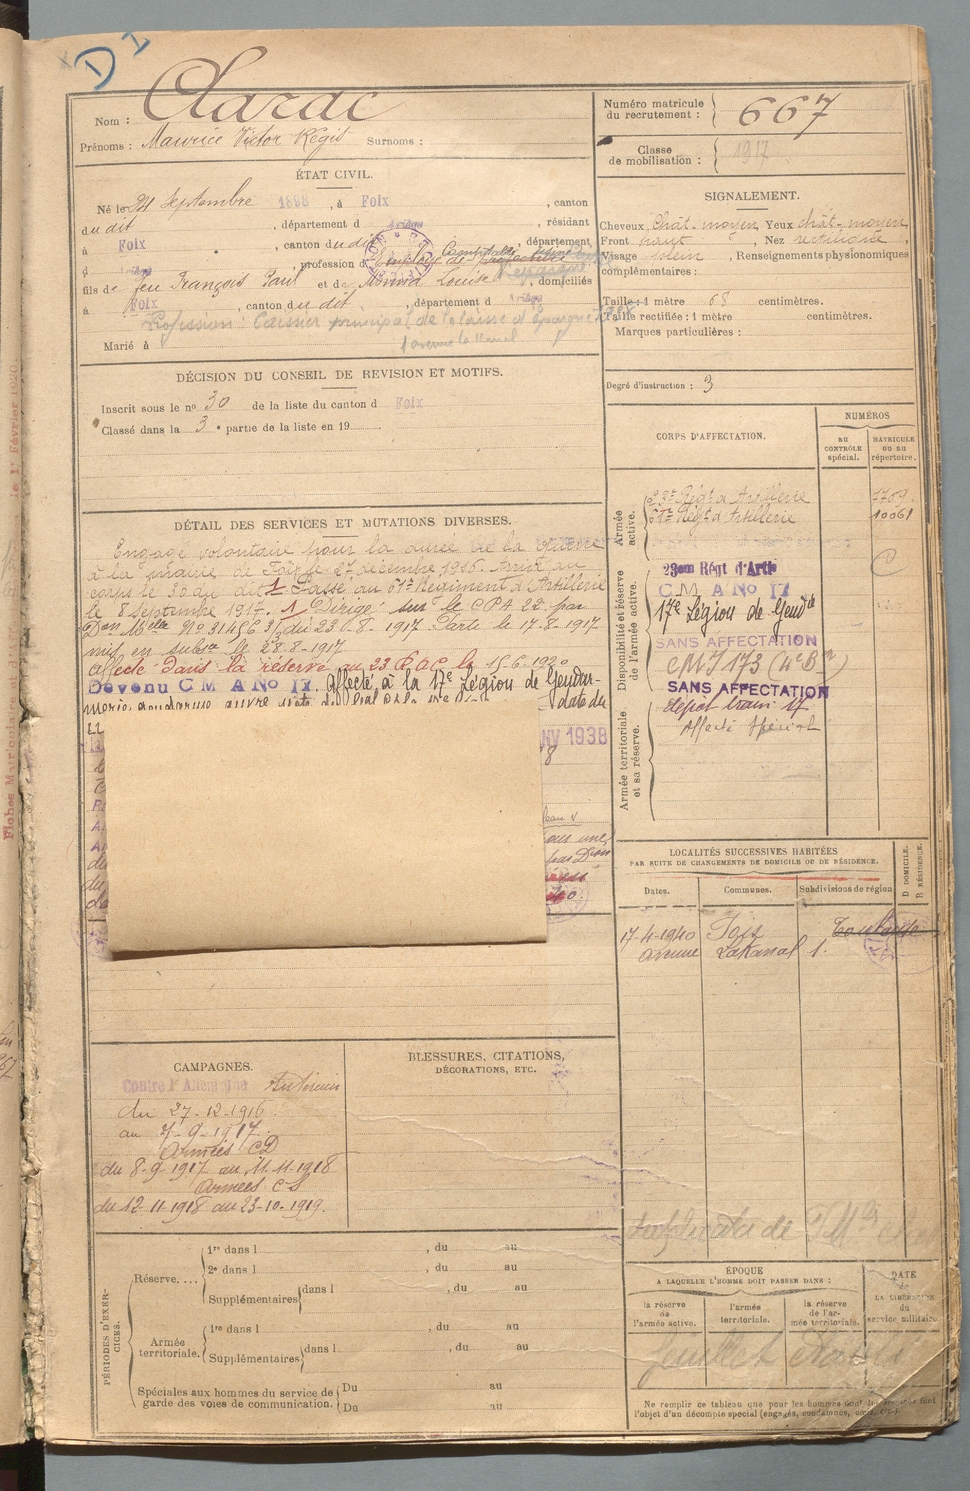 D 1
Nom : Clarac
Prénoms : Maurice Victor Régis Surnoms :
Numéro matricule du recrutement : 667
Classe de mobilisation : 1917
ÉTAT CIVIL.
Né le 21 Septembre 1898, à Foix, canton
du dit, département d Ariège, résidant
à Foix, canton du dit, département
d Ariège, profession d
fils de feu François Paul et de Louise, domiciliés
à Foix, canton du dit, département d Ariège
Profession : Caissier principal de la Caisse d'Epargne
Marié à
SIGNALEMENT.
Cheveux chât. moyen Yeux chât. moyen
Front haut, Nez rectiligne
Visage plein, Renseignements physionomiques
complémentaires :
Taille : 1 mètre 68 centimètres.
Taille rectifiée : 1 mètre centimètres.
Marques particulières :
Degré d'instruction : 3
DÉCISION DU CONSEIL DE REVISION ET MOTIFS.
Inscrit sous le no 30 de la liste du canton d Foix
Classé dans la 3e partie de la liste en 19
CORPS D'AFFECTATION.
NUMÉROS
AU CONTRÔLE spécial.
MATRICULE OU AU répertoire.
Armée active.
23e Régt d'Artillerie 1709
61e Régt d'Artillerie 10061
Disponibilité et réserve de l'armée active.
23em Régt d'Artie
C M A No 17
17e Légion de Gendie
SANS AFFECTATION
CMI 173
SANS AFFECTATION
Armée territoriale et sa réserve.
dépôt train 17
Affecté spécial
DÉTAIL DES SERVICES ET MUTATIONS DIVERSES.
Engagé volontaire pour la durée de la guerre
à la mairie de Foix le 27 décembre 1916. Arrivé au
corps le 30 au dit. 1 Passé au 61e Régiment d'Artillerie
le 8 Septembre 1917. 1 Dirigé sur le CPA 22 par
Don Mlle No 31456 3/3 du 23-8-1917 Parti le 17-8-1917
mis en subsce le 28-8-1917
Affecté dans la réserve au 23 R.A.C. le 15-6-1920
Devenu C M A No 17. Affecté à la 17e Légion de Gendar-
date du
NV 1938
LOCALITÉS SUCCESSIVES HABITÉES
PAR SUITE DE CHANGEMENTS DE DOMICILE OU DE RÉSIDENCE.
Dates. Communes. Subdivisions de région
D DOMICILE. R RÉSIDENCE.
17-4-1940 Foix Toulouse
avenue Lakanal 1.
CAMPAGNES.
Contre l'Allemagne Intérieur
du 27-12-1916
au 7-9-1917.
Armées CD
du 8-9-1917 au 11-11-1918
Armées CS
du 12-11-1918 au 23-10-1919.
BLESSURES, CITATIONS,
DÉCORATIONS, ETC.
PÉRIODES D'EXERCICES.
Réserve....
1re dans l , du au
2e dans l , du au
Supplémentaires dans l , du au
Armée territoriale.
1re dans l , du au
Supplémentaires dans l , du au
Spéciales aux hommes du service de
garde des voies de communication.
Du au
Du au
duplicata de
ÉPOQUE
A LAQUELLE L'HOMME DOIT PASSER DANS :
la réserve de l'armée active.
l'armée territoriale.
la réserve de l'armée territoriale.
DATE de LA LIBÉRATION du service militaire.
feuillet
Ne remplir ce tableau que pour les hommes dont
l'objet d'un décompte spécial (engagés, condamnés,
Fiches Matriculaires
le 1er Février 1920